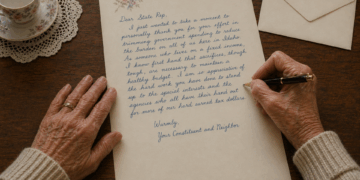 Dear State Rep.
I just wanted to take a moment to
personally thank you for your effort in
trimming government spending to reduce
the burden on all of us here in Idaho.
As someone who lives on a fixed income,
I know first hand that sacrifices, though
tough, are necessary to maintain a
healthy budget. I am in appreciation of
the hard work you have done to stand
up to the special interests and the
agencies who all have their hand out
for more of our hard earned tax dollars
Warmly,
Your Constituent and Neighbor